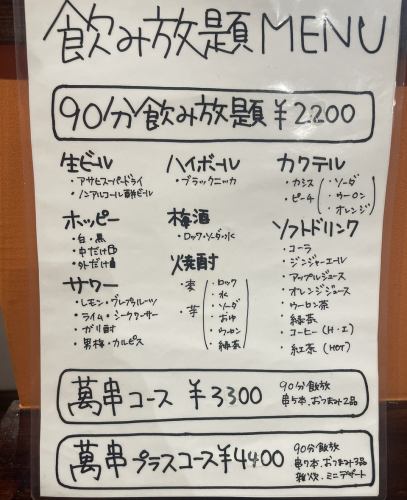 飲み放題MENU
90分飲み放題 ¥2200
生ビール
・アサヒスーパードライ
・ノンアルコール 酎ビール
ホッピー
・白・黒
・中だけ
・外だけ
サワー
・レモン・グレフルーツ
・ライム・シークワーサー
・ガリ酎
・男梅・カルピス
ハイボール
・ブラックニッカ
梅酒
・ロック・ソーダ・水
焼酎
・麦
・芋
・ロック
・水
・ソーダ
・お湯
・ウーロン
・緑茶
カクテル
・カシス
・ピーチ
・ソーダ
・ウーロン
・オレンジ
ソフトドリンク
・コーラ
・ジンジャーエール
・アップルジュース
・オレンジジュース
・ウーロン茶
・緑茶
・コーヒー (H・I)
・紅茶 (HOT)
萬串コース ¥3300
90分飲放
串5本、おつまみ2品
萬串プラスコース¥4400
90分飲放
串7本、おつまみ3品
雑炊、ミニデザート